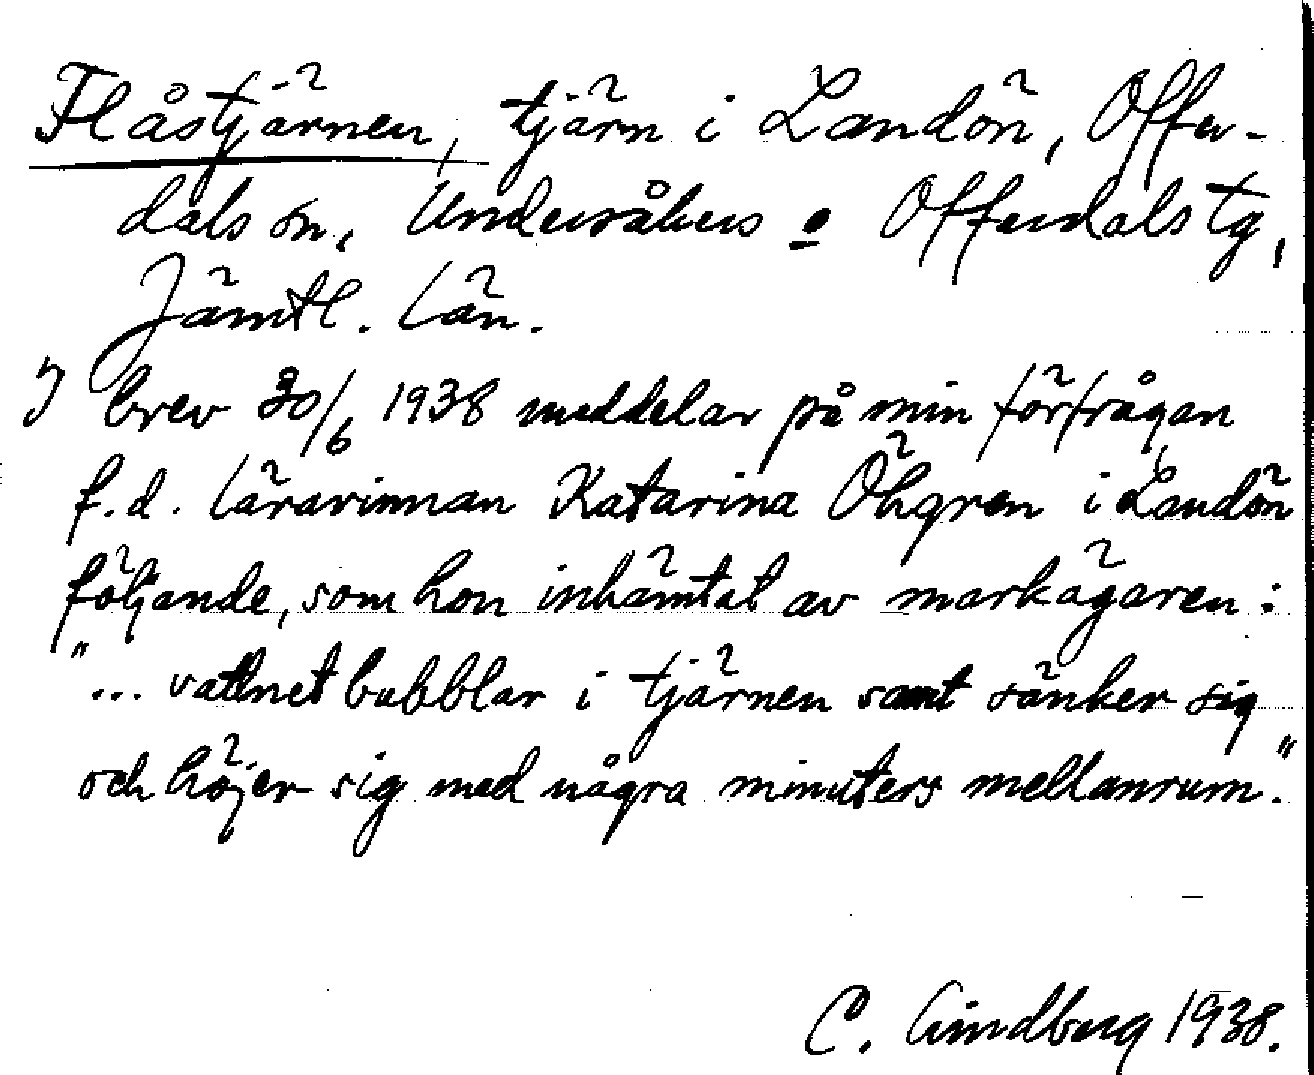 Flåstjärnen, tjärn i Landön, Offer-
dals sn, Undersåkers o Offerdals tg,
Jämtl. län.
I brev 30/6 1938 meddelar på min förfrågan
f.d. lärarinnan Katarina Öhgren i Landön
följande, som hon inhämtat av markägaren:
"... vattnet bubblar i tjärnen samt sänker sig
och höjer sig med några minuters mellanrum."
C. Lindberg 1938.